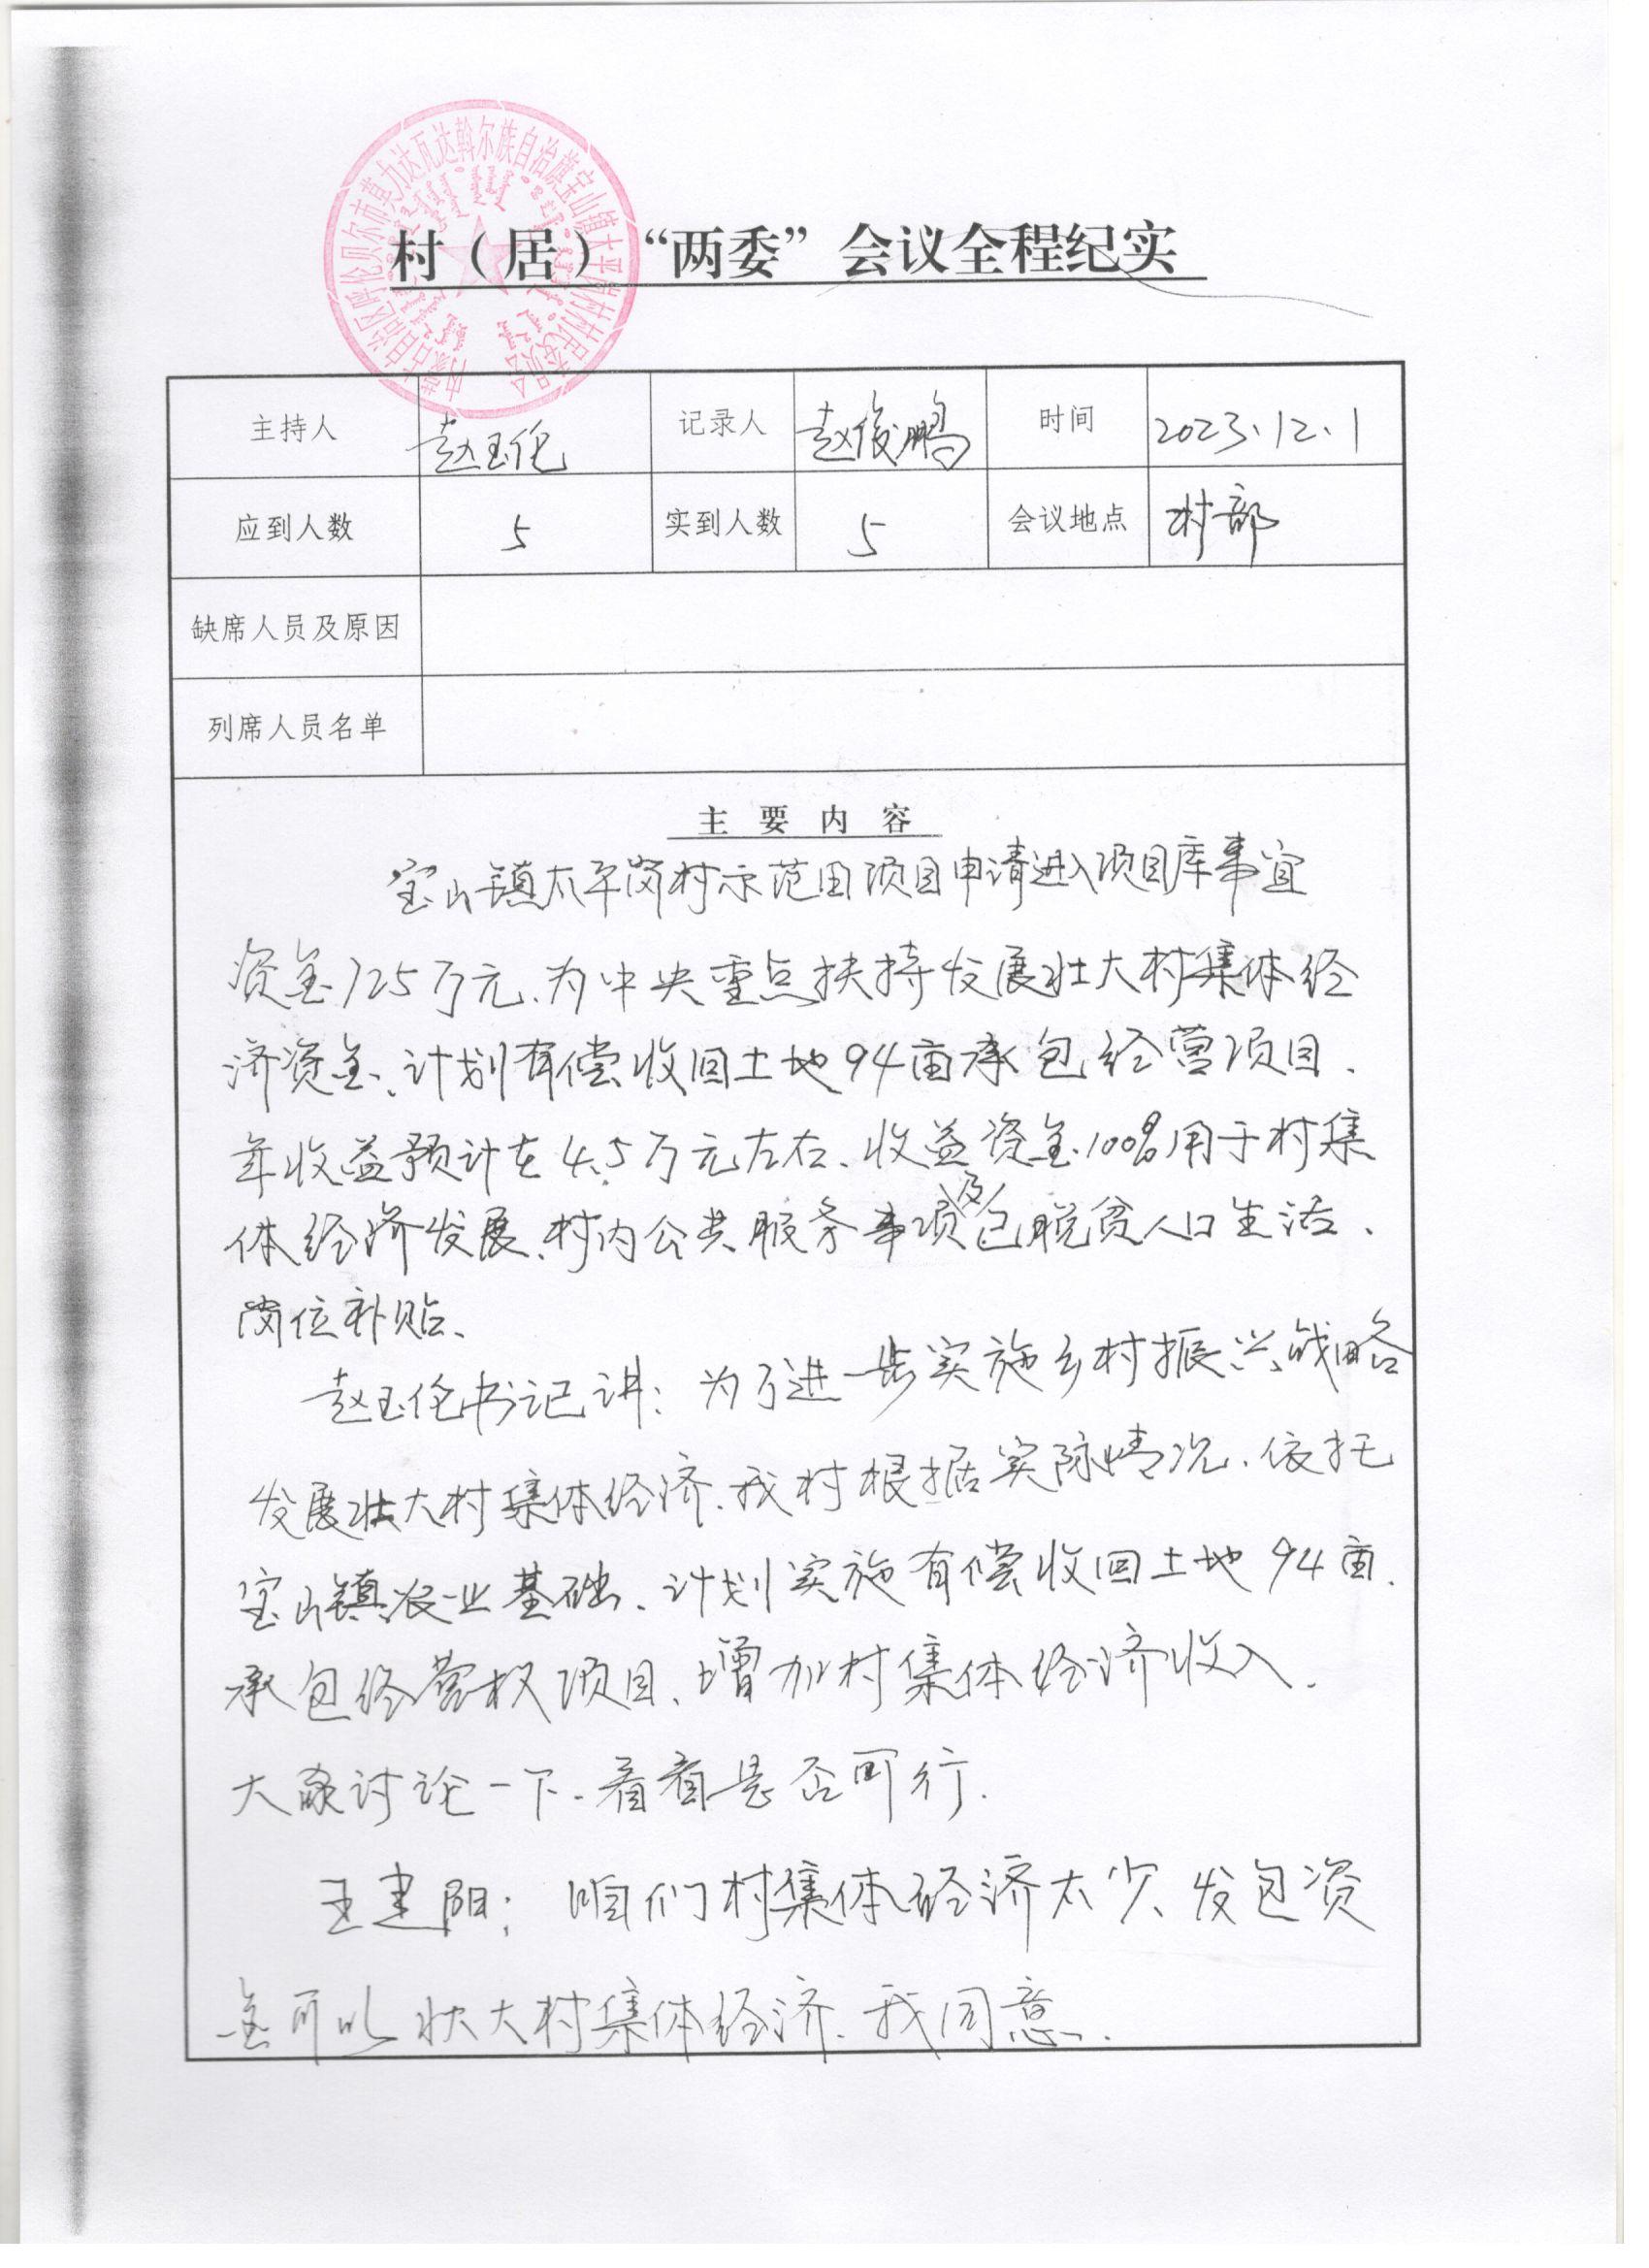 内蒙古自治区呼伦贝尔市莫力达瓦达斡尔族自治旗宝山镇太平岗村村民委员会
村（居）“两委”会议全程纪实
主持人 赵玉伦 记录人 赵俊鹏 时间 2023.12.1
应到人数 5 实到人数 5 会议地点 村部
缺席人员及原因
列席人员名单
主要内容
宝山镇太平岗村示范田项目申请进入项目库事宜
资金125万元、为中央重点扶持发展壮大村集体经
济资金、计划有偿收回土地94亩承包经营项目.
年收益预计在4.5万元左右、收益资金100%用于村集
体经济发展、村内公共服务事项及已脱贫人口生活、
岗位补贴、
赵玉伦书记讲：为了进一步实施乡村振兴战略
发展壮大村集体经济、我村根据实际情况、依托
宝山镇农业基础、计划实施有偿收回土地94亩.
承包经营权项目、增加村集体经济收入.
大家讨论一下.看看是否可行.
王建阳：咱们村集体经济太少、发包资
金可以壮大村集体经济、我同意.